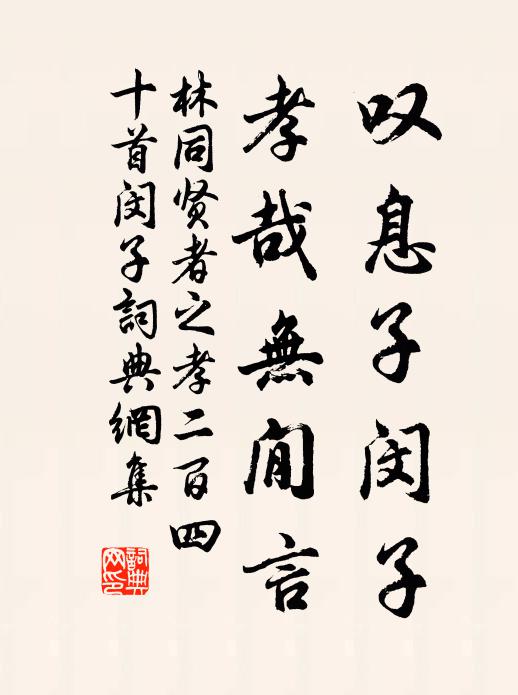 叹息子闵子
孝哉無閒言
林同贤者之孝二百四
十首闵子詞典網集
詞典网印